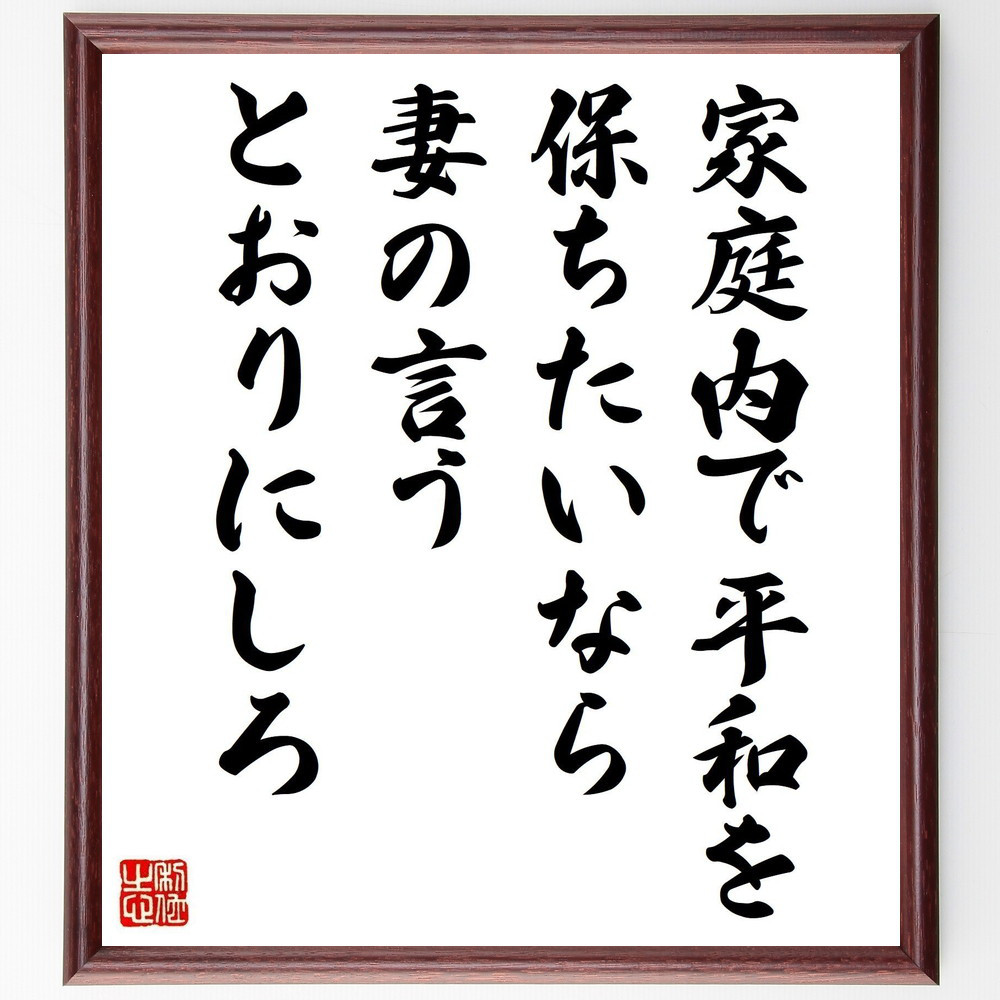 家庭内で平和を
保ちたいなら
妻の言う
とおりにしろ